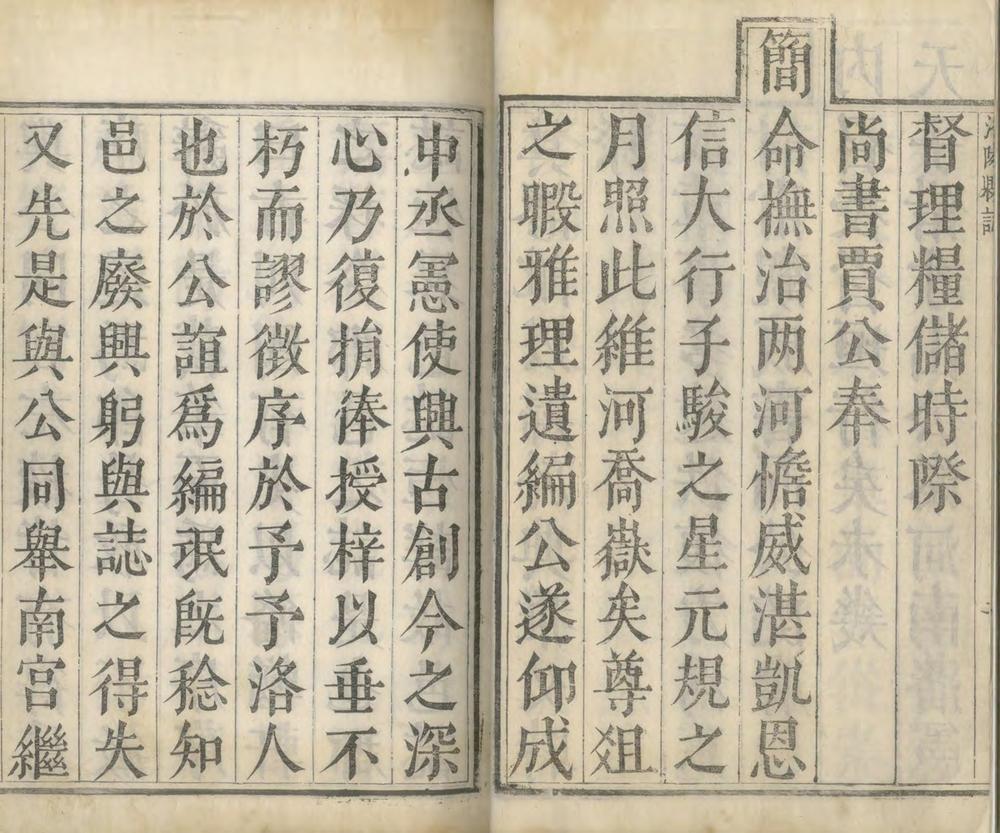 督理糧儲時際
尚書賈公奉
簡命撫治两河憺威湛凱恩
信大行子駿之星元規之
月照此維河喬嶽矣尊俎
之暇雅理遺編公遂仰成
中丞憲使興古創今之深
心乃復捐俸授梓以垂不
朽而謬徵序於予予洛人
也於公誼爲編氓既稔知
邑之廢興躬與誌之得失
又先是與公同舉南宮繼